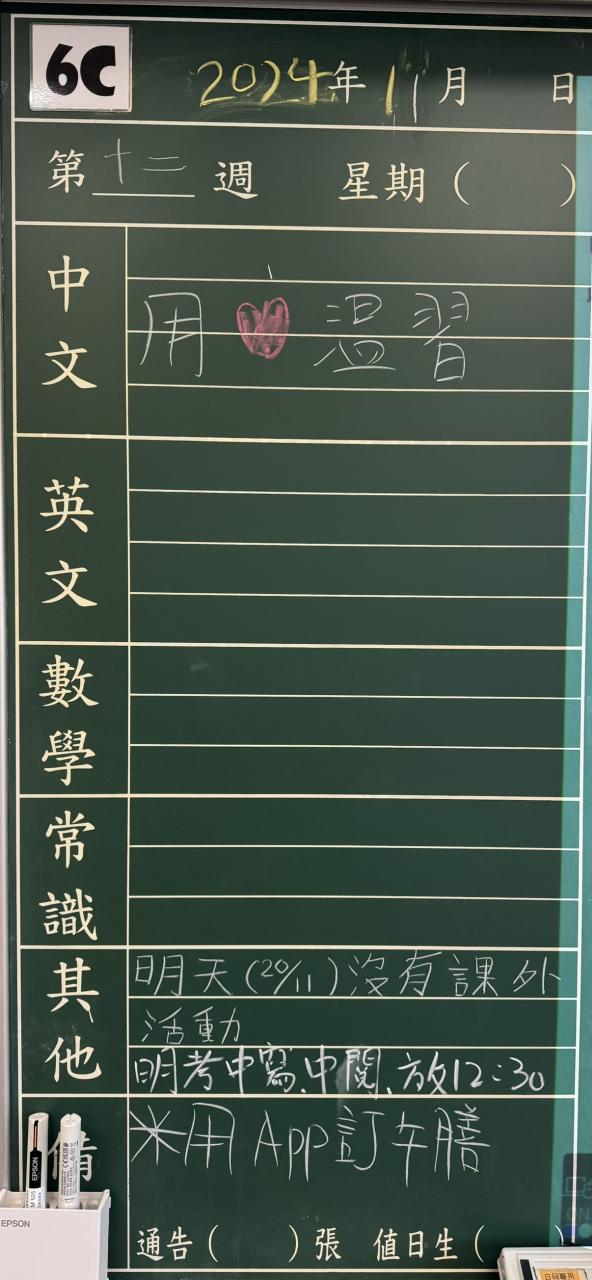 6C 2024年11月 日
第十二週 星期( )
中文
用 温習
英文
數學
常識
其他
明天(20/11)沒有課外
活動
明考中寫、中閱、放12:30
備
※用App訂午膳
通告( )張 值日生(
EPSON
EPSON